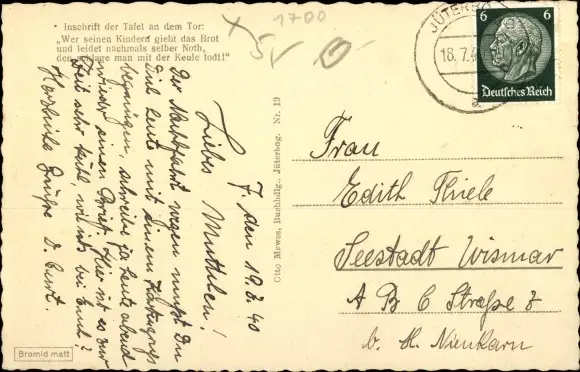 Inschrift der Tafel an dem Tor:
"Wer seinen Kindern giebt das Brot
und leidet nachmals selber Noth,
den schlage man mit der Keule todt!"
1700
JÜTERBOG
18.7.40
6 6
Deutsches Reich
J. den 19.7.40
Liebes Muttchen!
Der Nachtfahrt wegen mußt Du
Dich heute mit einem Kartengruß
begnügen, schreibe ja heute abend
einen Brief. Hier ist es zur
Zeit sehr kühl, wie ist's bei Euch?
Herzliche Grüße D. Curt.
Otto Mewes, Buchhdlg., Jüterbog. Nr. 19
Frau
Edith Thiele
Seestadt Wismar
A B C Straße 8
b. H. Nienkarn
Bromid matt